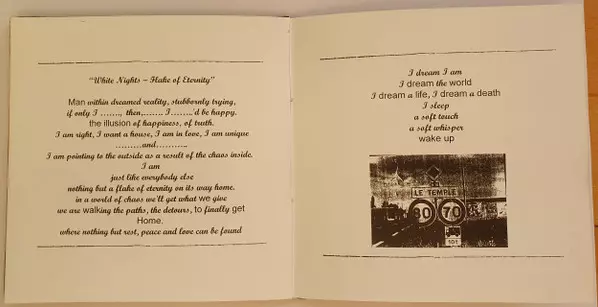 "White Nights – Flake of Eternity"
Man within dreamed reality, stubbornly trying,
if only I …….., then,……. I……..'d be happy.
the illusion of happiness, of truth.
I am right, I want a house, I am in love, I am unique
………and………..
I am pointing to the outside as a result of the chaos inside.
I am
just like everybody else
nothing but a flake of eternity on its way home.
in a world of chaos we'll get what we give
we are walking the paths, the detours, to finally get
Home.
where nothing but rest, peace and love can be found
I dream I am
I dream the world
I dream a life, I dream a death
I sleep
a soft touch
a soft whisper
wake up
LE TEMPLE
80 70
10t